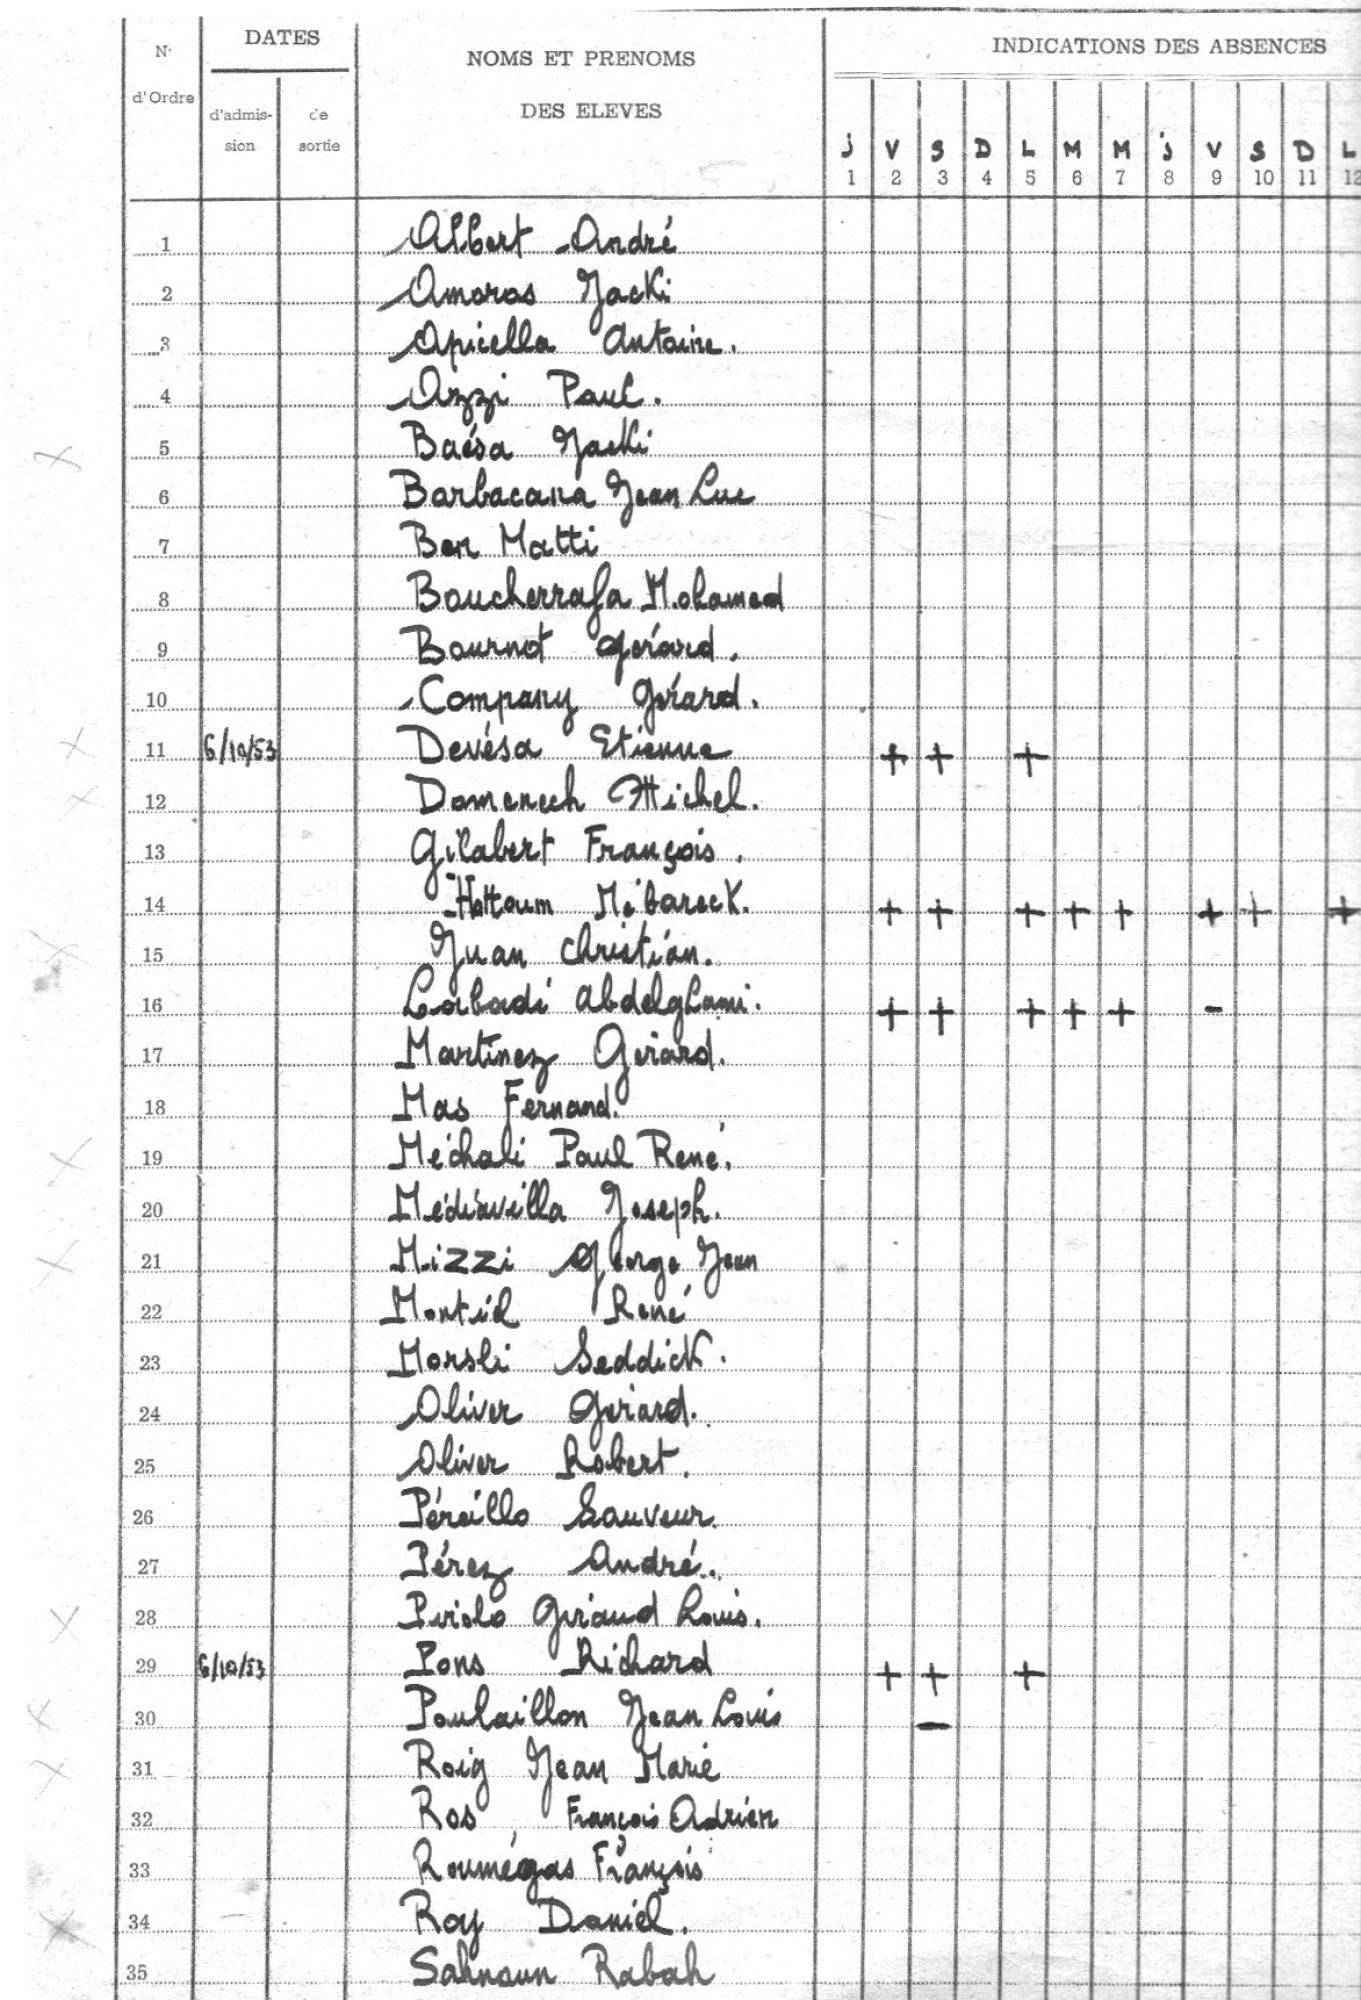 N° DATES NOMS ET PRENOMS INDICATIONS DES ABSENCES
d'Ordre d'admis- de DES ELEVES
sion sortie j V S D L M M j V S D L
1 2 3 4 5 6 7 8 9 10 11 12
1 Albert André
2 Amoros Jacki
3 Apicella Antoine.
4 Azzi Paul.
5 Baésa Jacki
6 Barbacana Jean Luc
7 Ben Matti
8 Boucherrafa Mohamed
9 Bournot Gérard.
10 Company Gérard.
11 6/10/53 Devésa Etienne + + +
12 Domenech Michel.
13 Gilabert François.
14 Hattoum M'bareck. + + + + + + + +
15 Juan Christian.
16 Labadi Abdelghani. + + + + + -
17 Martinez Gérard.
18 Mas Fernand.
19 Méchali Paul René.
20 Médiavilla Joseph.
21 Mizzi George Jean
22 Montiel René
23 Morsli Seddick.
24 Oliver Gérard.
25 Oliver Robert.
26 Péréillo Sauveur.
27 Pérez André.
28 Louis.
29 6/10/53 Pons Richard + + +
30 Poulaillon Jean Louis -
31 Roig Jean Marie
32 Ros François Adrien
33 Roumégas François
34 Roy Daniel.
35 Sahnoun Rabah